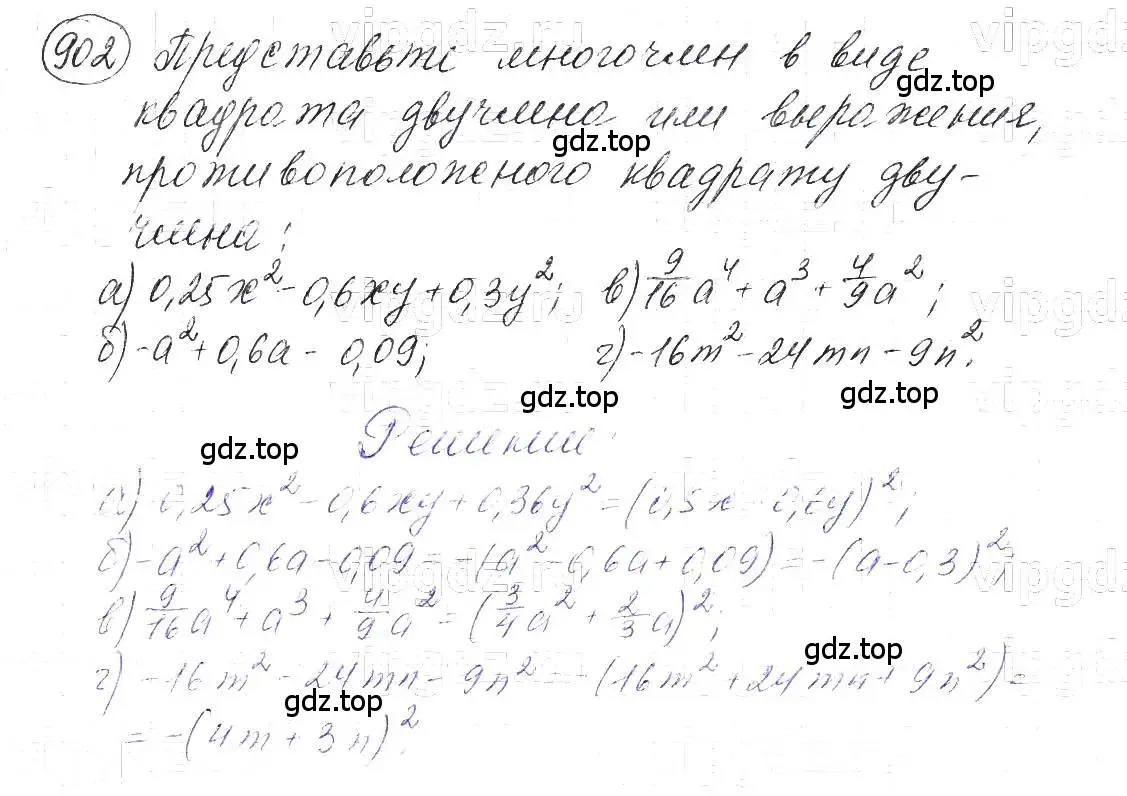 902 Представьте многочлен в виде
квадрата двучлена или выражения,
противоположного квадрату дву-
члена:
а) 0,25x² - 0,6xy + 0,3y²; в) 9/16 a⁴ + a³ + 4/9 a²;
б) -a² + 0,6a - 0,09; г) -16m² - 24mn - 9n².
Решение:
а) 0,25x² - 0,6xy + 0,36y² = (0,5x - 0,6y)²;
б) -a² + 0,6a - 0,09 = -(a² - 0,6a + 0,09) = -(a - 0,3)²;
в) 9/16 a⁴ + a³ + 4/9 a² = (3/4 a² + 2/3 a)²;
г) -16m² - 24mn - 9n² = -(16m² + 24mn + 9n²) =
= -(4m + 3n)².
gdz.top
gdz.top
gdz.top
gdz.top
gdz.top
gdz.top
gdz.top